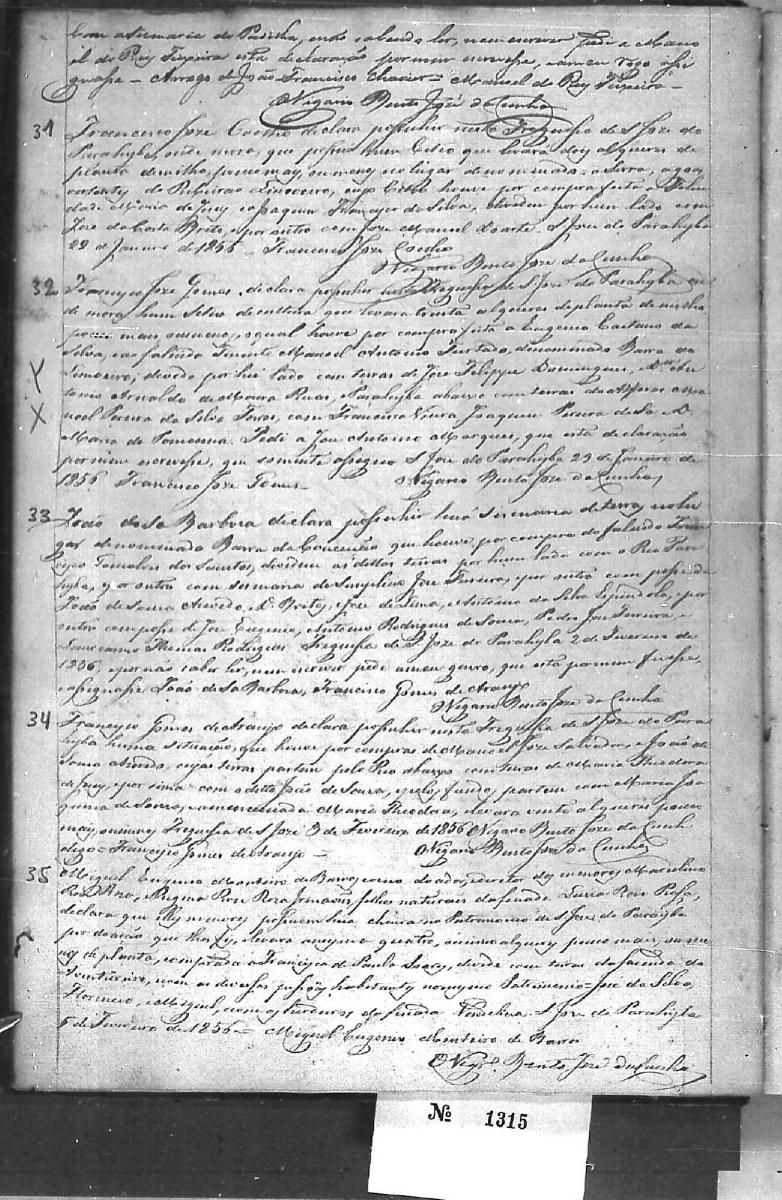 Com a Sesmaria do Padilha, enão sabendo ler, nem escrever pede a Mano
el do Rey Teixeira esta declaração por mim escrevesse, eameu rogo assi
gnasse = Arrogo de João Francisco Chavier = Manoel do Rey Teixeira =
O Vigario Bento José da Cunha
31 Francisco Joze Coelho declara possuhir nesta Freguesia de S. Joze do
Parahyba, onde mora, que possue hum Citio que levará dois alqueres de
planta de milho, pouco mais, ou menos no lugar denominado a Serra, agoas
vertentes do Ribeirão Limoeiro, cujo Citio houve por compra feita a
dade Maria de Jesus, e Joaquim Francisco da Silva, dividem por hum lado com
Joze da Costa Brito, e por outro com Joze Manoel Duarte. S. Joze do Parahyba
22 de Janeiro de 1856 = Francisco Joze Coelho
O Vigario Bento Joze da Cunha
32 Francisco Joze Gomes, declara possuhir nesta Freguesia de S. Joze do Parahyba on
de mora hum Sitio de cultura que levará trinta alqueres de planta de milho
pouco mais ou menos, o qual houve por compra feita a Eugenio Caetano da
Silva, e ao falecido Tenente Manoel Antonio Furtado, denominado Barra do
Limoeiro; divide por hum lado com terras de Joze Felippe Domingues, e D. An
tonio Arnaldo de Moura Ruas, e Parahyba abaixo com terras do Alferes Ma
noel Pereira da Silva Torres, com Francisco Vieira, Joaquim Pereira de Sá, e D.
Maria de Pomocena. Pedi a Joze Antonio Marques, que esta declaração
por mim escrevesse, que somente assigno S. Joze do Parahyba 29 de Janeiro de
1856 Francisco Joze Gomes = O Vigario Bento Joze da Cunha
33 João de Sá Barboza declara possuhir huma sismaria de terras no lu
gar denominado Barra da Conceição que houve por compra do falecido Fran
cisco Gonsalves dos Santos, dividem as ditas terras por hum lado com o Rio Para
hyba, e por outro com sesmaria de Simpliciano Joze Ferreira, e por outro com posse de
João de Souza Azevedo, D. Brites, Joze de Lima, e Antonio da Silva Espindola, e por
outro com posse de Joze Eugenio, Antonio Rodrigues de Souza, Pedro Joze Ferreira e
Lourenço Thomas Rodrigues. Freguesia de S. Joze do Parahyba 2 de Fevereiro de
1856, e por não saber ler, nem escrever pede a meu genro, que esta por mim fizesse,
e assignasse João de Sá Barboza, Francisco Gomes de Araujo
O Vigario Bento Joze da Cunha
34 Francisco Gomes de Araujo declara possuhir nesta Freguesia de S. Joze do Para
hyba huma situação, que houve por compras de Manoel Joze Salvador, e João de
Souza Azevedo, cujas terras partem pelo Rio abaixo com terras de Maria Theodora
de Jesus, e por sima com o ditto João de Souza, e pelo fundo, partem com Maria Joa
quina de Souza, e a mencionada Maria Theodora, e levará vinte alqueres pouco
mais, ou menos Freguesia de S. Jozé 3 de Fevereiro de 1856 O Vigario Bento Joze da Cunh
digo = Francisco Gomes de Araujo = O Vigario Bento Joze da Cunha
35 Miguel Eugenio Monteiro de Barros, como doador, e tutor dos menores, Marcelino
Roza, Regina Roza Irmaons, filhos naturais da finada Luiza Roza
declara que os menores possuem hua chacra no Patrimonio de S. Joze do Parahyba
por doação que lhes fez, e levará a mesma quatro, ou sinco alqueres pouco mais, ou me
nos de planta, comprada a Francisco de Paula divide com terras da fazenda do
com as diversas possoas habitantes no mesmo Patrimonio = Joze da Silva,
Florencio, e Miguel, com os herdeiros da finada S. Joze do Parahyba
5 de Fevereiro de 1856 = Miguel Eugenio Monteiro de Barros
O Vigr.º Bento Joze da Cunha
Nº 1315